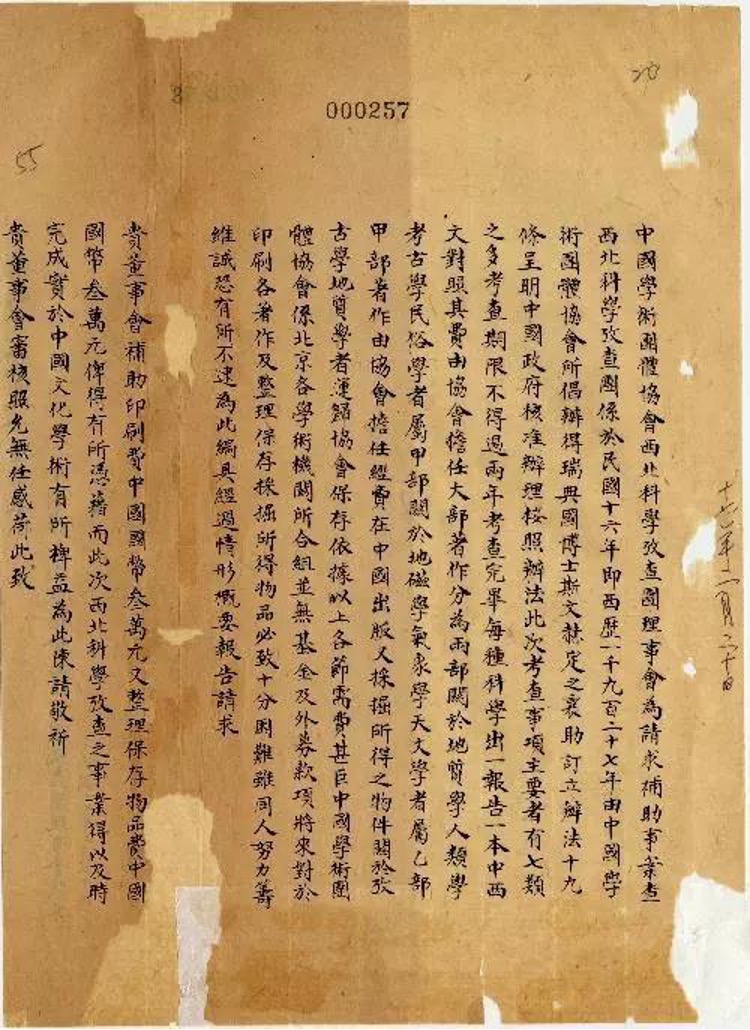 000257
55
中國學術團體協會西北科學攷查團理事會為請求補助事案查
西北科學攷查團係於民國十六年即西歷一千九百二十七年由中國學
術團體協會所倡辦得瑞典國博士斯文赫定之襄助訂立辦法十九
條呈明中國政府核准辦理桉照辦法此次考查事項主要者有七類
之多考查期限不得過兩年考查完畢每種科學出一報告一本中西
文對照其費由協會擔任大部著作分為兩部關於地質學人類學
考古學民俗學者屬甲部關於地磁學氣象學天文學者屬乙部
甲部著作由協會擔任經費在中國出版又採掘所得之物件關於攷
古學地質學者運歸協會保存依據以上各節需費甚巨中國學術團
體協會係北京各學術機關所合組並無基金及外募款項將來對於
印刷各著作及整理保存採掘所得物品必致十分困難雖同人努力籌
維誠恐有所不逮為此編具經過情形概要報告請求
貴董事會補助印刷費中國國幣叁萬元又整理保存物品費中國
國幣叁萬元俾得有所憑藉而此次西北科學攷查之事業得以及時
完成實於中國文化學術有所裨益為此陳請敬祈
貴董事會審核照允無任感荷此致